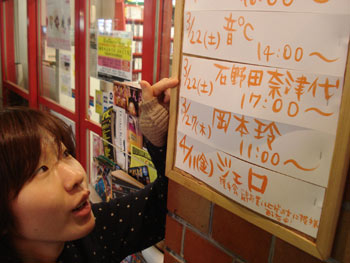 3/22(土) 音℃
14:00〜
3/22(土) 石野田奈津代
17:00〜
3/27(木) 岡本玲
11:00〜
4/11(金) ジェロ